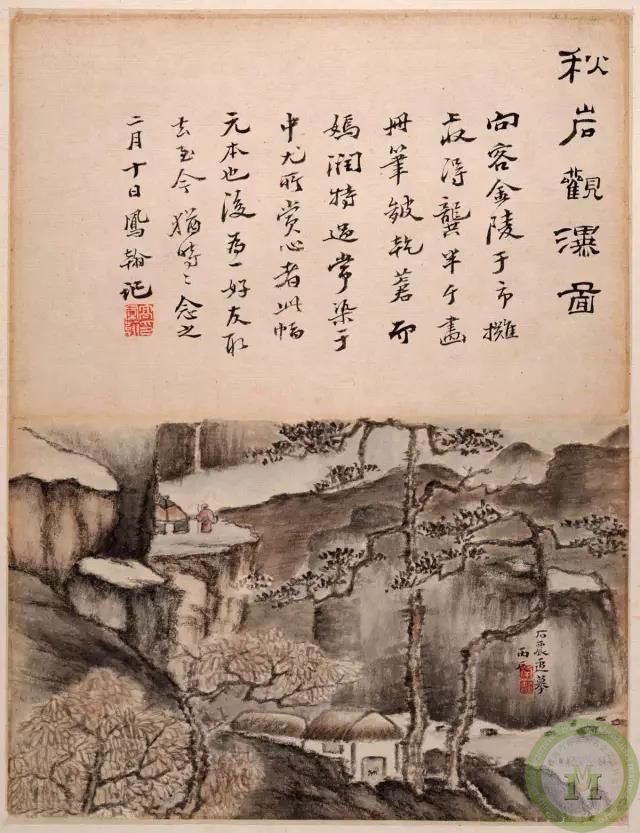 秋岩觀瀑圖
向客金陵于市攤
收得龔半千畫
冊筆皴乾著而
嫣潤特過常染于
中尤所賞心者此幅
元本也後為一好友取
去至今猶時々念之
二月十日鳳翰記
石農追摹
丙辰
M